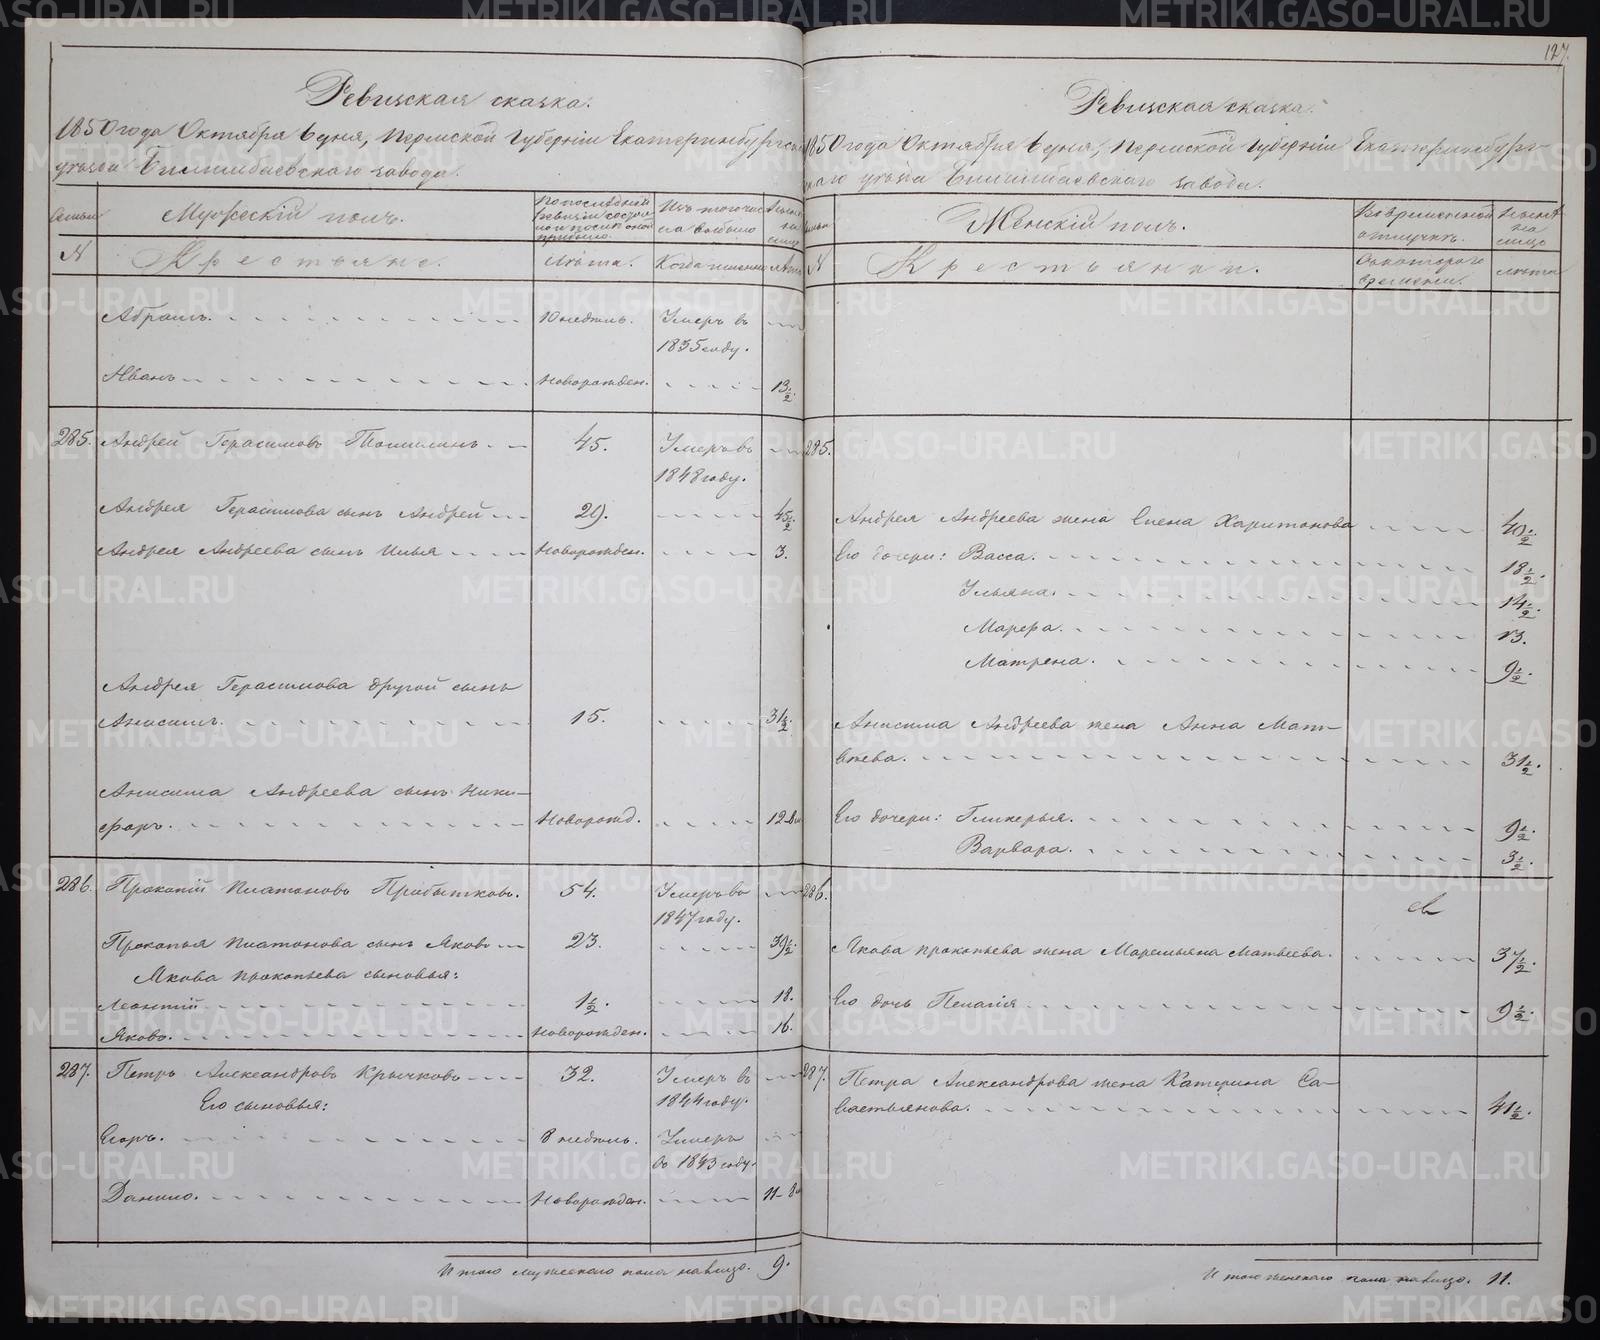 127.
Ревизская сказка.
1850 года Октября 6 дня, Пермской Губерніи Екатеринбургска
уѣзда Билимбаевскаго завода.
Семьи
Мужескій полъ.
По последней ревизіи состояло и после оной прибыло
Изъ того числа выбыло
Нынѣ на лицо
№
Крестьяне.
Лѣта.
Когда именно
Лѣта
Абрамъ. 10 недѣль. Умеръ въ
1835 году.
Иванъ Новорожден. 13 1/2
285. Андрей Герасимовъ Томилинъ 45. Умеръ въ
1848 году.
Андрея Герасимова сынъ Андрей 29. 45 1/2
Андрея Андреева сынъ Илья Новорожден. 3.
Андрея Герасимова другой сынъ
Анисимъ. 15. 31 1/2.
Анисима Андреева сынъ Ники-
форъ. Новорожд. 12
286. Прокопій Платоновъ Прибытковъ. 54. Умеръ въ
1847 году.
Прокопья Платонова сынъ Яковъ 23. 39 1/2.
Якова Прокопьева сыновья:
Леонтій 1 1/2. 18.
Яковъ. Новорожден. 16.
287. Петръ Александровъ Крычковъ 32. Умеръ въ
1844 году.
Его сыновья:
Егоръ. 8 недѣль. Умеръ
въ 1843 году.
Данило. Новорожден. 11
Итого мужескаго пола налицо. 9.
Ревизская сказка.
1850 года Октября 6 дня, Пермской Губерніи Екатеринбург-
скаго уѣзда Билимбаевскаго завода.
Семьи
Женскій полъ.
Во временной отлучкѣ.
Нынѣ на лицо
№
Крестьянки.
Съ котораго времени.
лѣта
285.
Андрея Андреева жена Елена Харитонова 40 1/2.
Его дочери: Васса. 18 1/2.
Ульяна. 14 1/2.
Марфа. 13.
Матрена. 9 1/2.
Анисима Андреева жена Анна Мат-
вѣева. 31 1/2.
Его дочери: Гликерья. 9 1/2.
Варвара. 3 1/2.
286.
Якова Прокопьева жена Маремьяна Матвѣева. 37 1/2.
Его дочь Пелагія 9 1/2.
287. Петра Александрова жена Катерина Са-
вастьянова. 41 1/2.
Итого женскаго пола налицо. 11.
METRIKI.GASO-URAL.RU